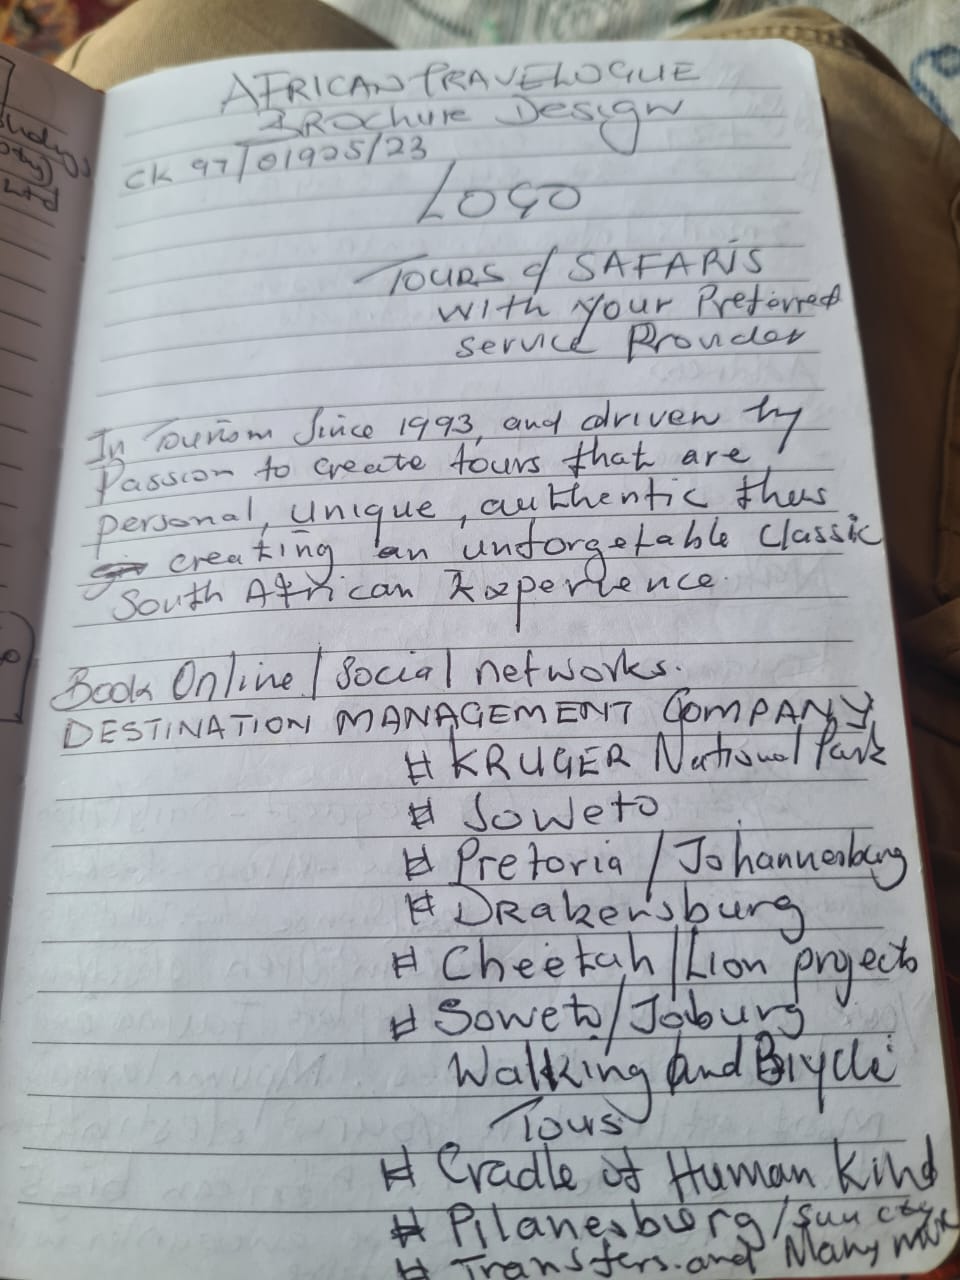 AFRICAN TRAVELOGUE
Brochure Design
CK 97/01925/23
LOGO
TOURS & SAFARIS
with your Preferred
service Provider
In Tourism Since 1993, and driven by
Passion to create tours that are
personal, unique, authentic thus
creating an unforgetable Classic
South African Experience.
Book Online/Social networks.
DESTINATION MANAGEMENT COMPANY
# KRUGER National Park
# Soweto
# Pretoria / Johannesburg
# Drakensburg
# Cheetah/Lion projects
# Soweto/Joburg
Walking and Bicycle
Tours
# Cradle of Human Kind
# Pilanesburg/Sun City
# Transfers and Many more